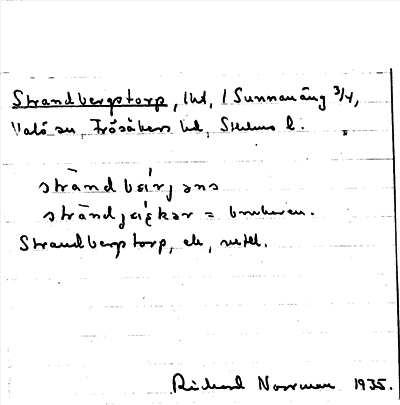 Strandbergstorp, lht, / Sunnanäng 3/4,
Valö sn, Frösåkers hd, Sthlms l.
stràndbärjəns
= brukaren.
Strandbergstorp, ek,
Rickard Norrman 1935.